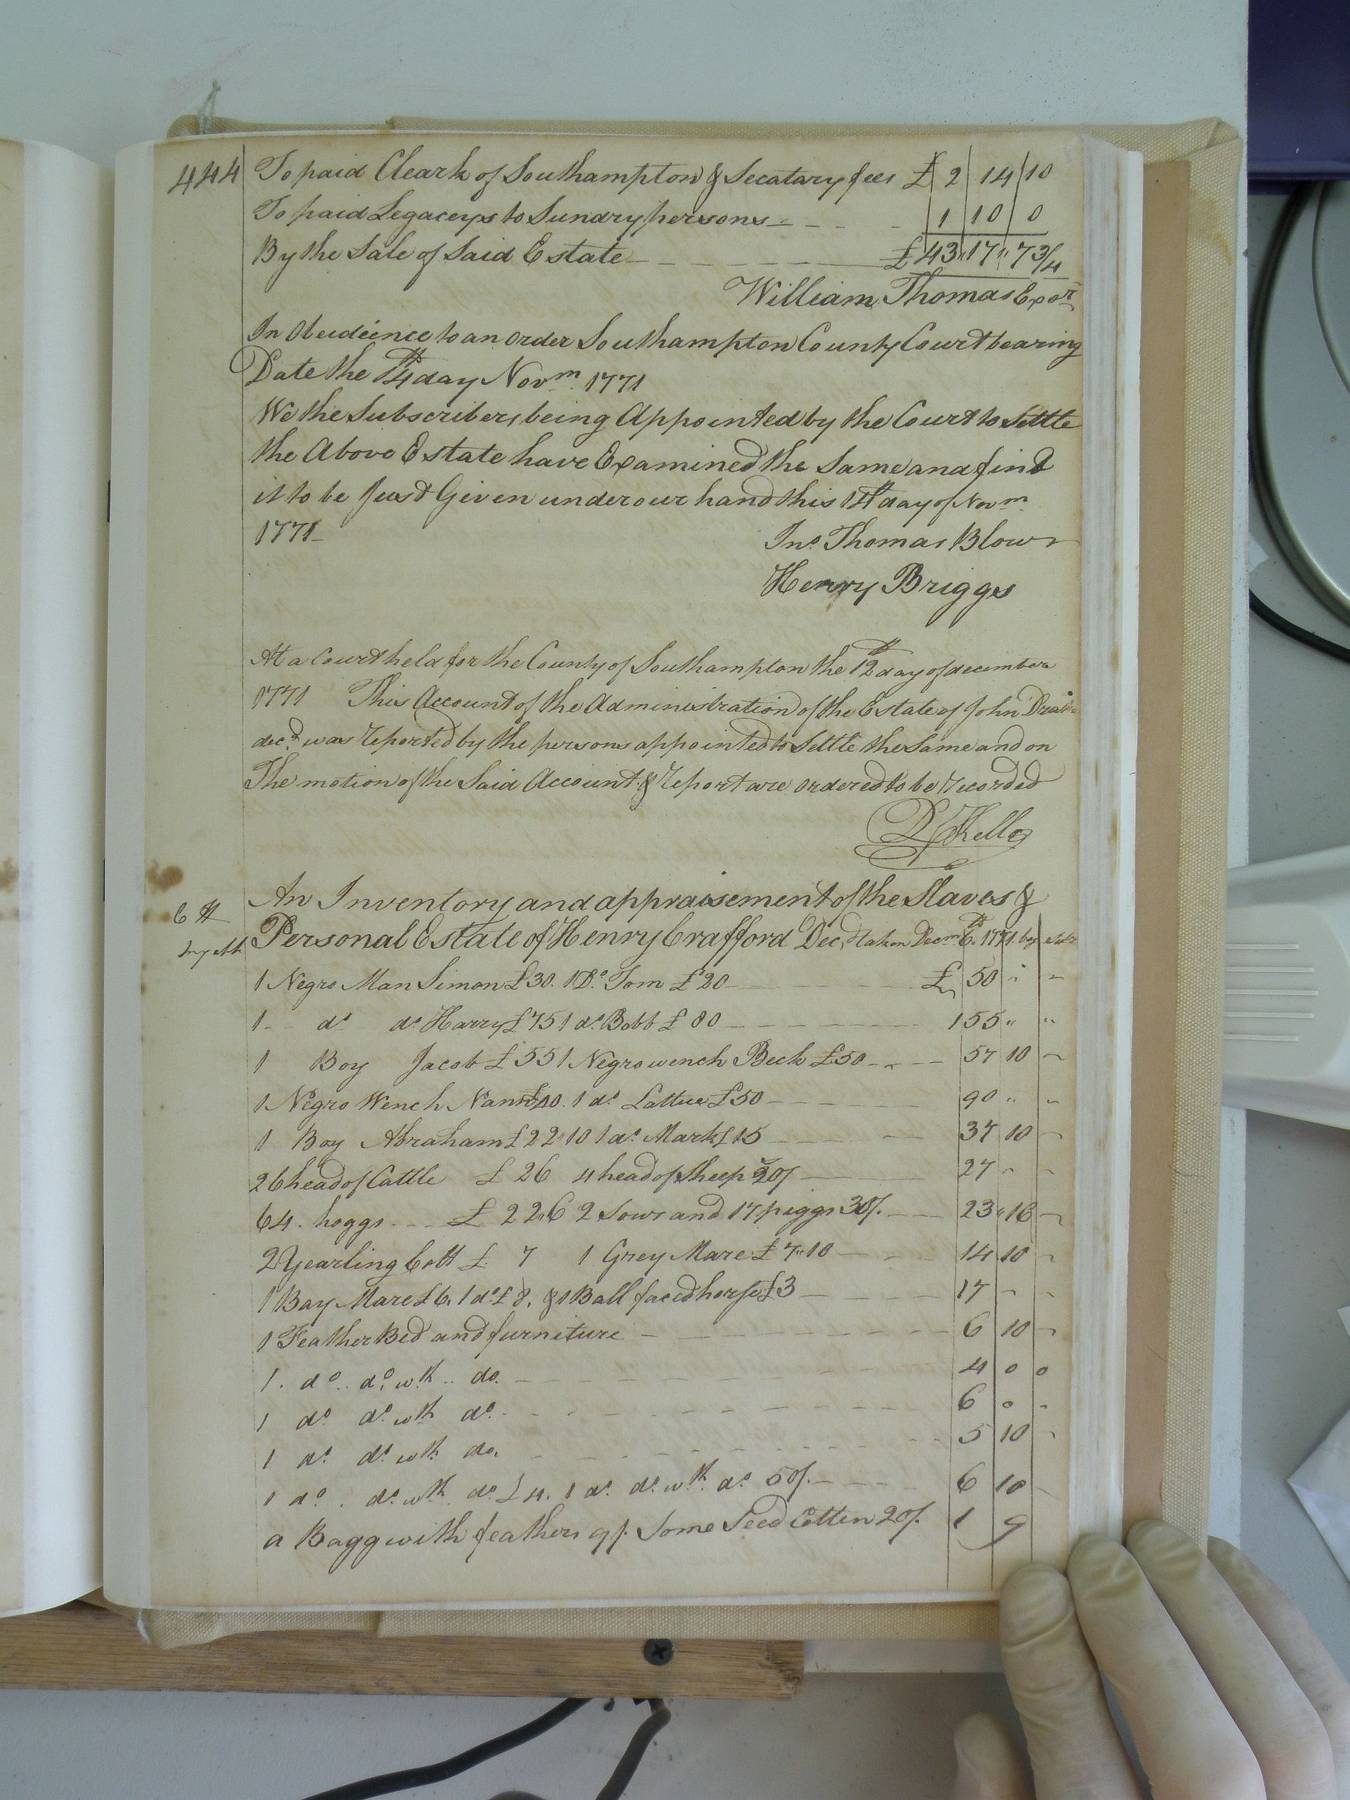 444 To paid Cleark of Southampton & Secatary fees £ 2 14 10
To paid Legaceys to Sundry persons 1 10 0
By the Sale of Said Estate £ 43 " 17 " 7 3/4
William Thomas Exor
In Obedience to an order Southampton County Court bearing
Date the 14th day Novm 1771
We the Subscribers being Appointed by the Court to Settle
the Above Estate have Examined the Same and find
it to be Just Given under our hand this 14th day of Novm
1771 Jno Thomas Blow
Henry Briggs
At a Court held for the County of Southampton the 12th day of december
1771 This Account of the Administration of the Estate of John
decd was reported by the persons appointed to Settle the Same and on
The motion of the Said Account & report are ordered to be recorded
An Inventory and appraisement of the Slaves &
Personal Estate of Henry Crafford Decd taken Decmr 6th 1771 by
1 Negro Man Simon £30. 1 Do Tom £20 £ 50 " "
1 do do Harry £75 1 do Bobb £ 80 155 " "
1 Boy Jacob £ 55 1 Negro wench Beck £50 57 10
1 Negro Wench Nann £40. 1 do Lattice £50 90 " "
1 Boy Abraham £22 10 1 do Mark £15 37 10
26 head of Cattle £ 26 4 head of Sheep 20/ 27 " "
64. hoggs £ 22.6 2 Sows and 17 piggs 30/. 23 " 16
2 Yearling Colt £ 7 1 Grey Mare £ 7 " 10 14 10
1 Bay Mare £6. 1 do £ 8. & 1 Ball faced horse £3 17 " "
1 Feather Bed and furniture 6 10
1. do do wth do. 4 0 0
1 do do wth do 6 0
1 do do wth do. 5 10
1 do. do wth do £4. 1 do do wth do 50/. 6 10
a Bagg with feathers 9/. Some Seed Cotten 20/. 1 9